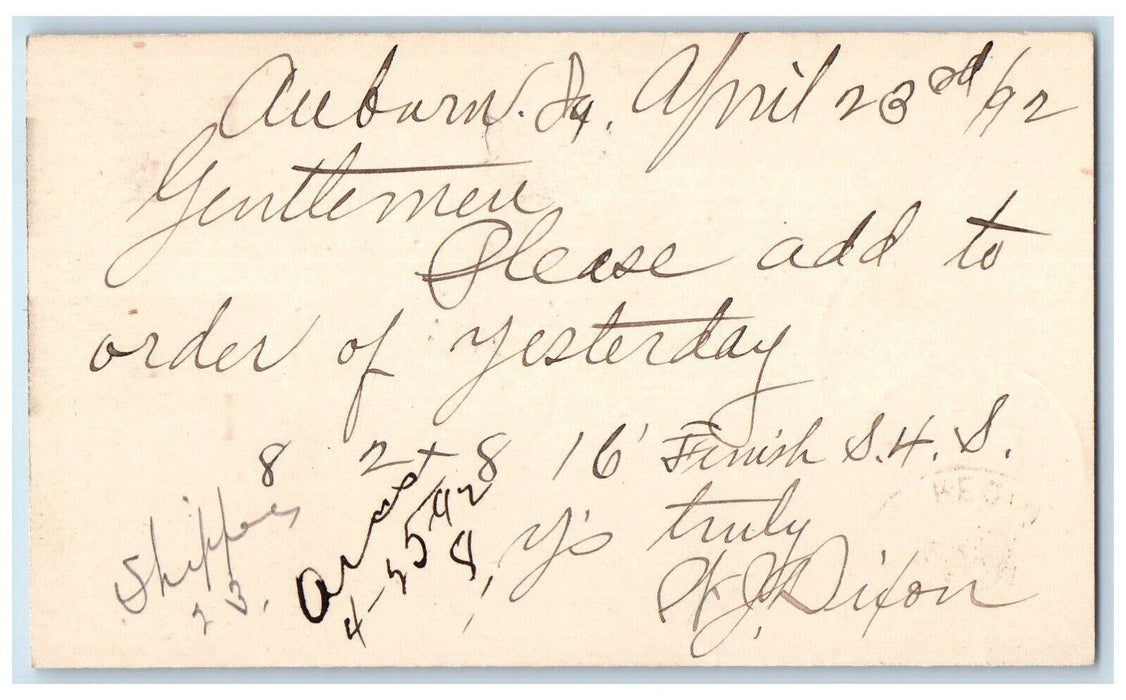 Auburn. Ia. April 23rd /92
Gentlemen
Please add to
order of yesterday
8 2 x 8 16' Finish S.4.S.
Y's truly
J. Dixon
Shipped
23.
4-25-92
8
REC'